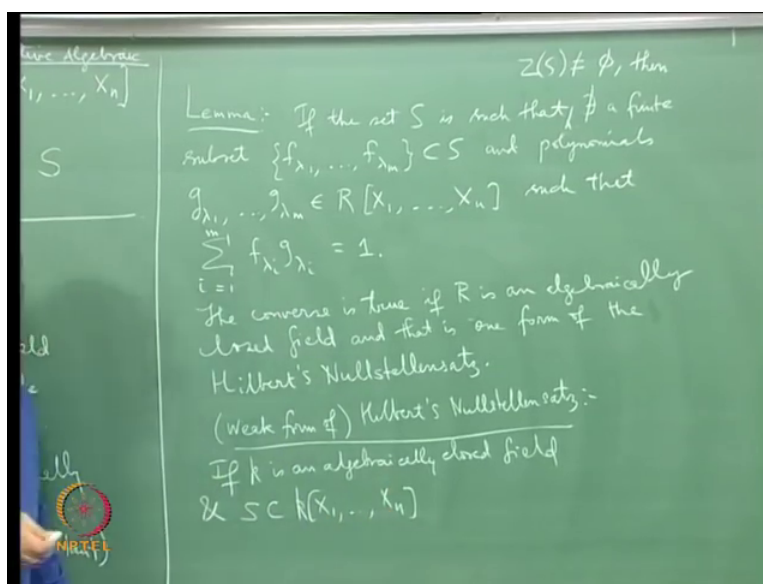 tive Algebraic
X₁, ..., Xₙ]
S
Z(S) ≠ φ, then
Lemma:- If the set S is such that, ∄ a finite
subset {f_λ₁, ..., f_λₘ} ⊂ S and polynomials
g_λ₁, ..., g_λₘ ∈ R[X₁, ..., Xₙ] such that
∑_{i=1}^{m} f_λᵢ g_λᵢ = 1.
The converse is true if R is an algebraically
closed field and that is one form of the
Hilbert's Nullstellensatz.
(Weak form of) Hilbert's Nullstellensatz:-
If k is an algebraically closed field
& S ⊂ k[X₁, ..., Xₙ]
eld
ally
NPTEL